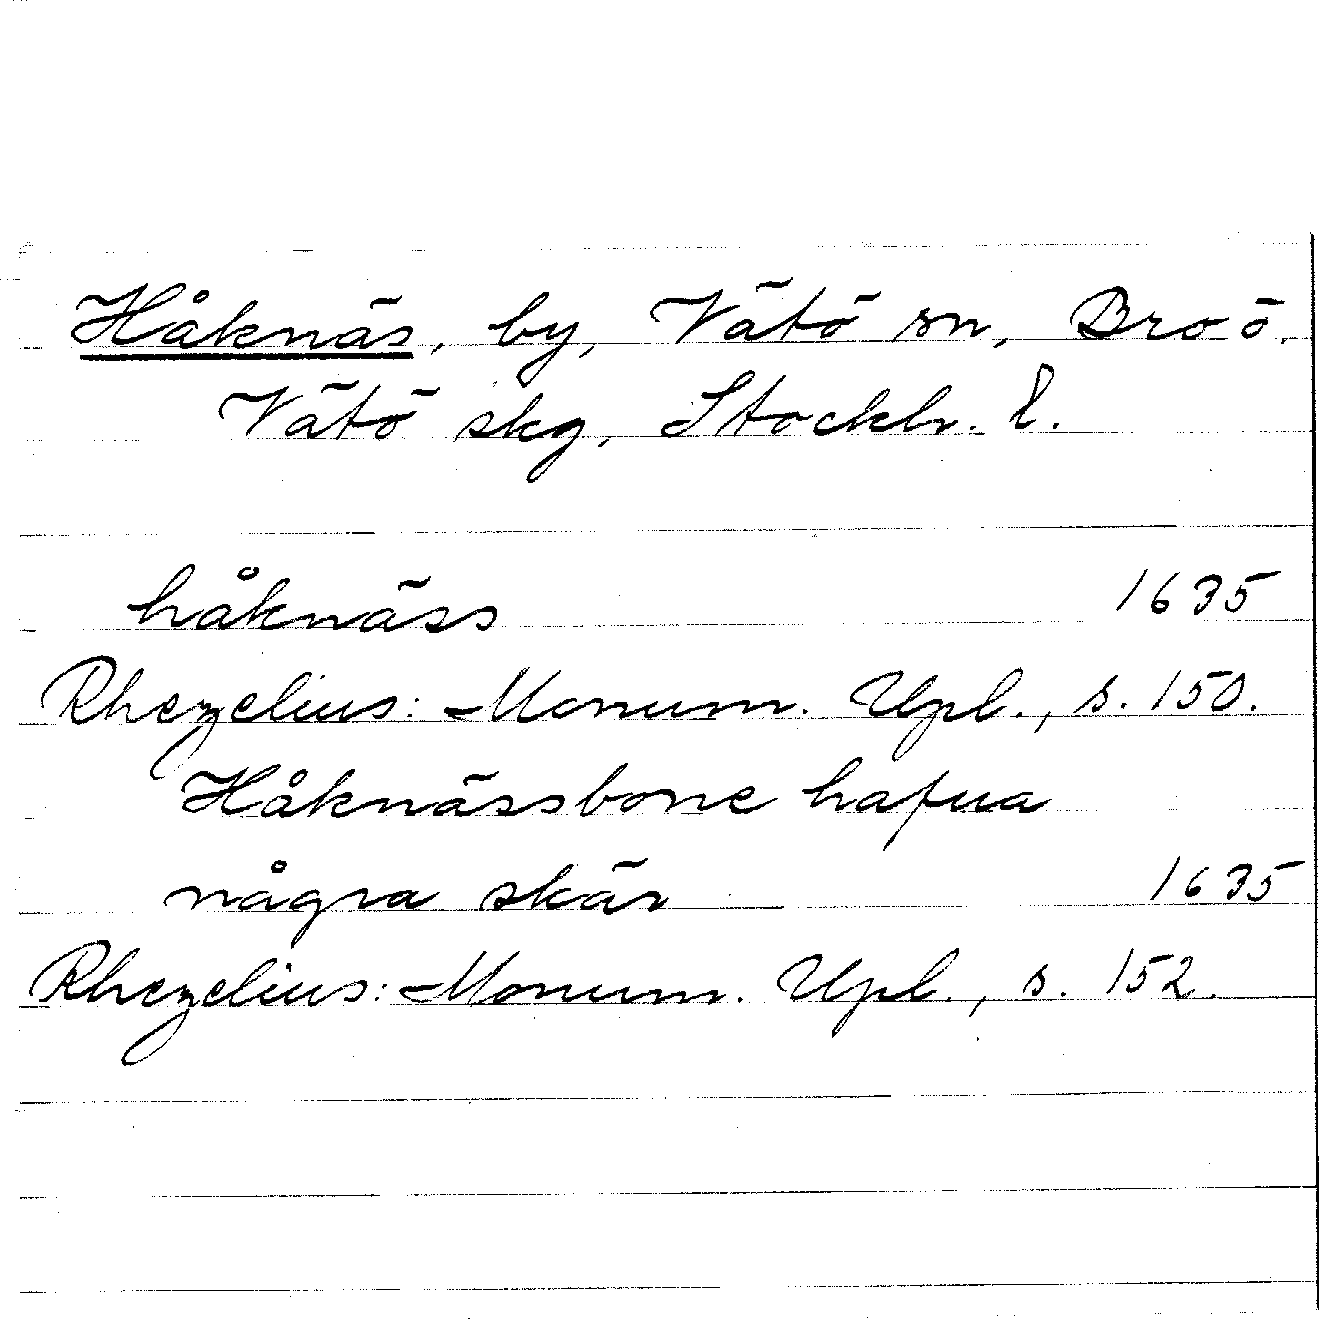 Håknäs, by, Vätö sn, Bro o.
Vätö skg, Stockh. l.
håknäss 1635
Rhezelius: Monum. Upl., s. 150.
Håknässbone hafua
några skär 1635
Rhezelius: Monum. Upl., s. 152.